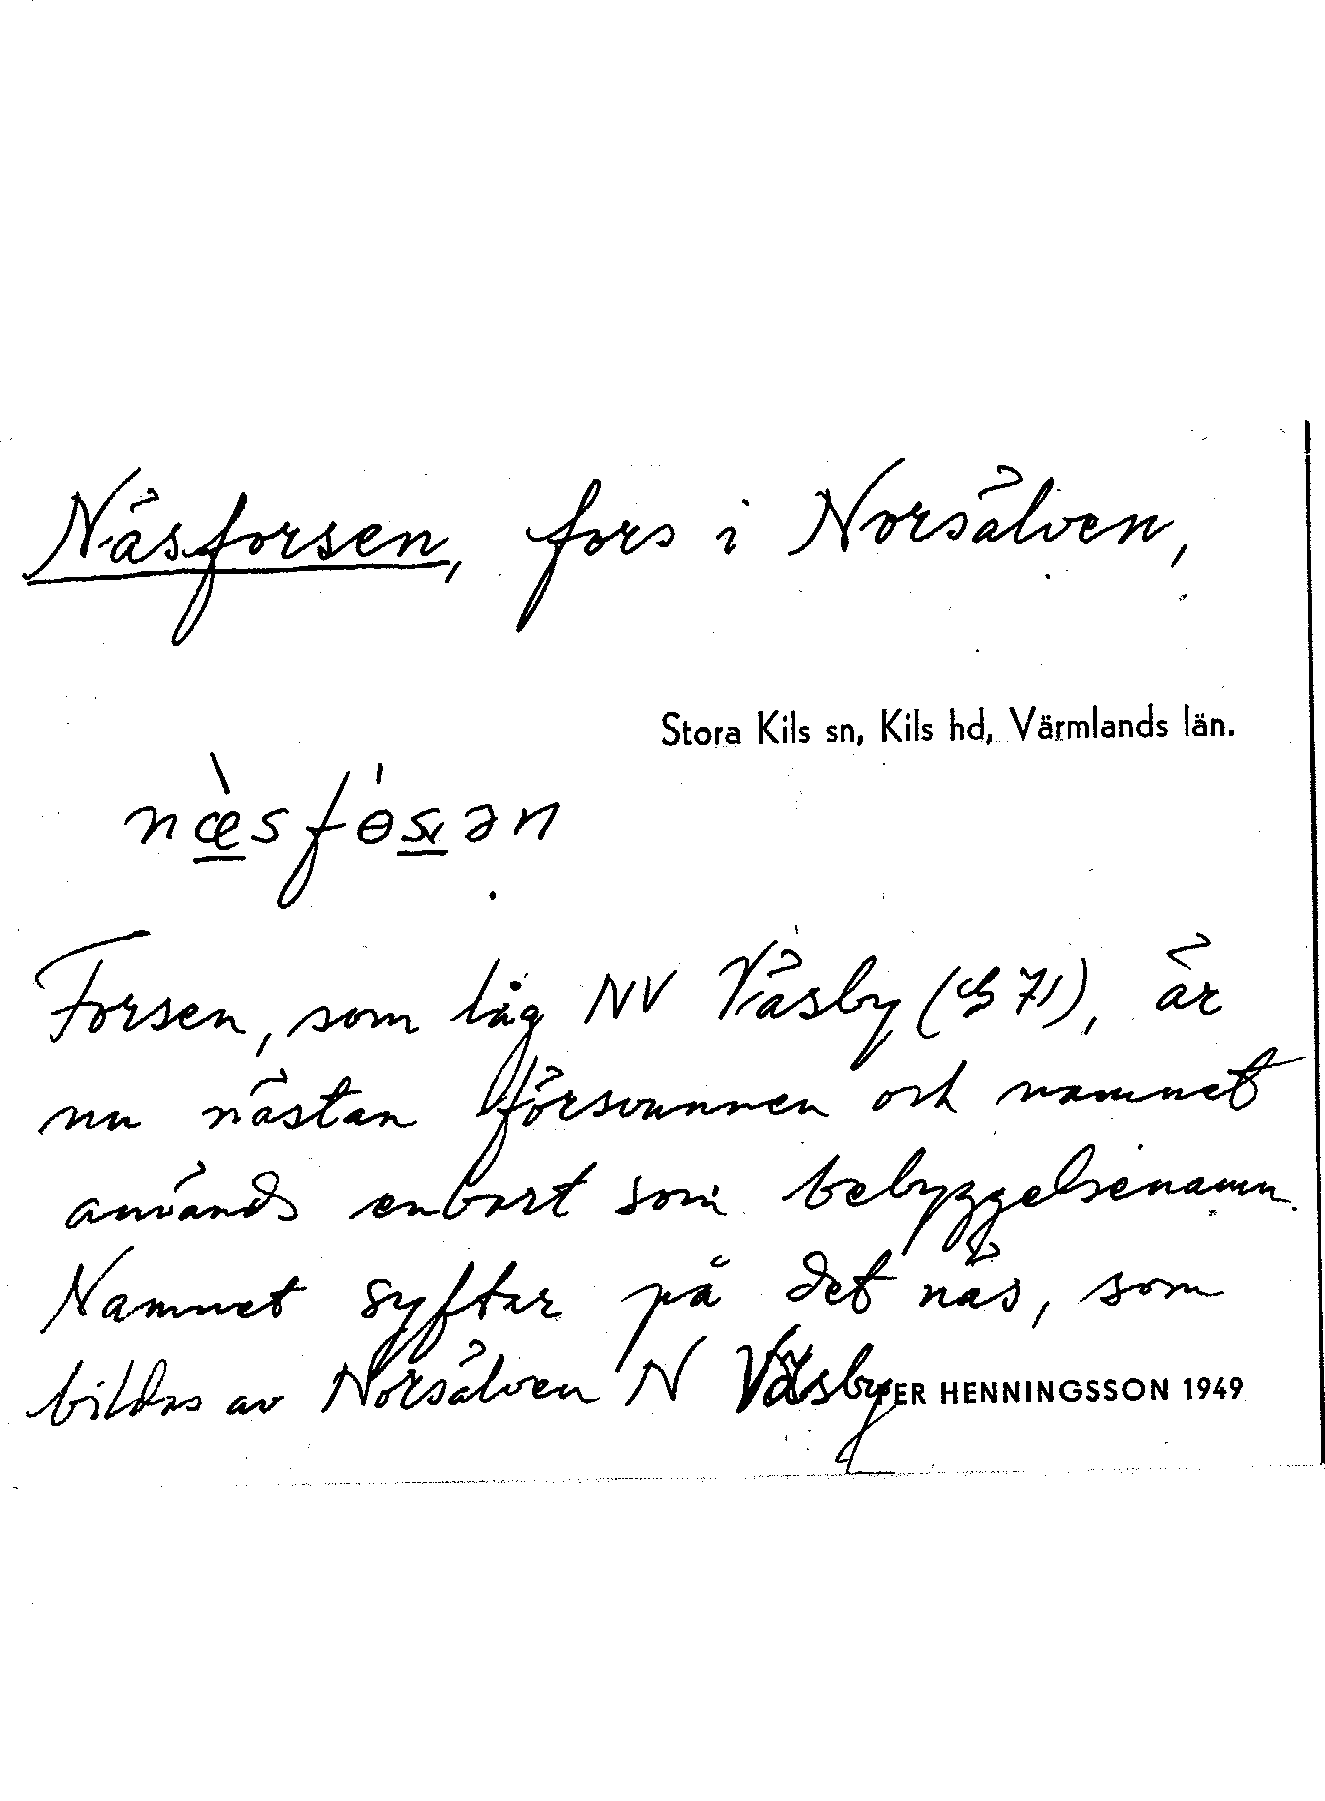 Näsforsen, fors i Norsälven,
Stora Kils sn, Kils hd, Värmlands län.
næ̀sfɵ́sən
Forsen, som låg NV Väsby (71), är
nu nästan försvunnen och namnet
används enbart som bebyggelsenamn.
Namnet syftar på det näs, som
bildas av Norsälven N Väsby
ER HENNINGSSON 1949